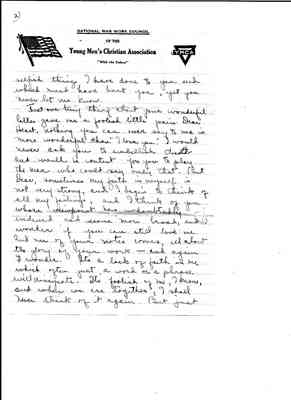 2)
NATIONAL WAR WORK COUNCIL
OF THE
Young Men's Christian Association
"With the Colors"
YMCA
selfish things I have done to you and
which must have hurt you, yet you
never let me know.
Just one tiny thing that your wonderful
letter gave me a foolish little pain. Dear
Heart, nothing you can ever say to me is
more wonderful than "I love you". I would
never ask you to embellish that
and would be content for you to play
the man who could say only that. But
Dear, sometimes my faith in myself is
not very strong, and I begin to think of
all my failings, and I think of you
whose viewpoint has undoubtedly
widened and become more broad, and
wonder if you can still love me
but one of your notes comes, all about
the glory of your work – and again
I wonder. Its a lack of faith in me
which often just a word or a phrase
will dissipate. Its foolish of me, I know,
and when we are together, I shall
never think of it again. But just